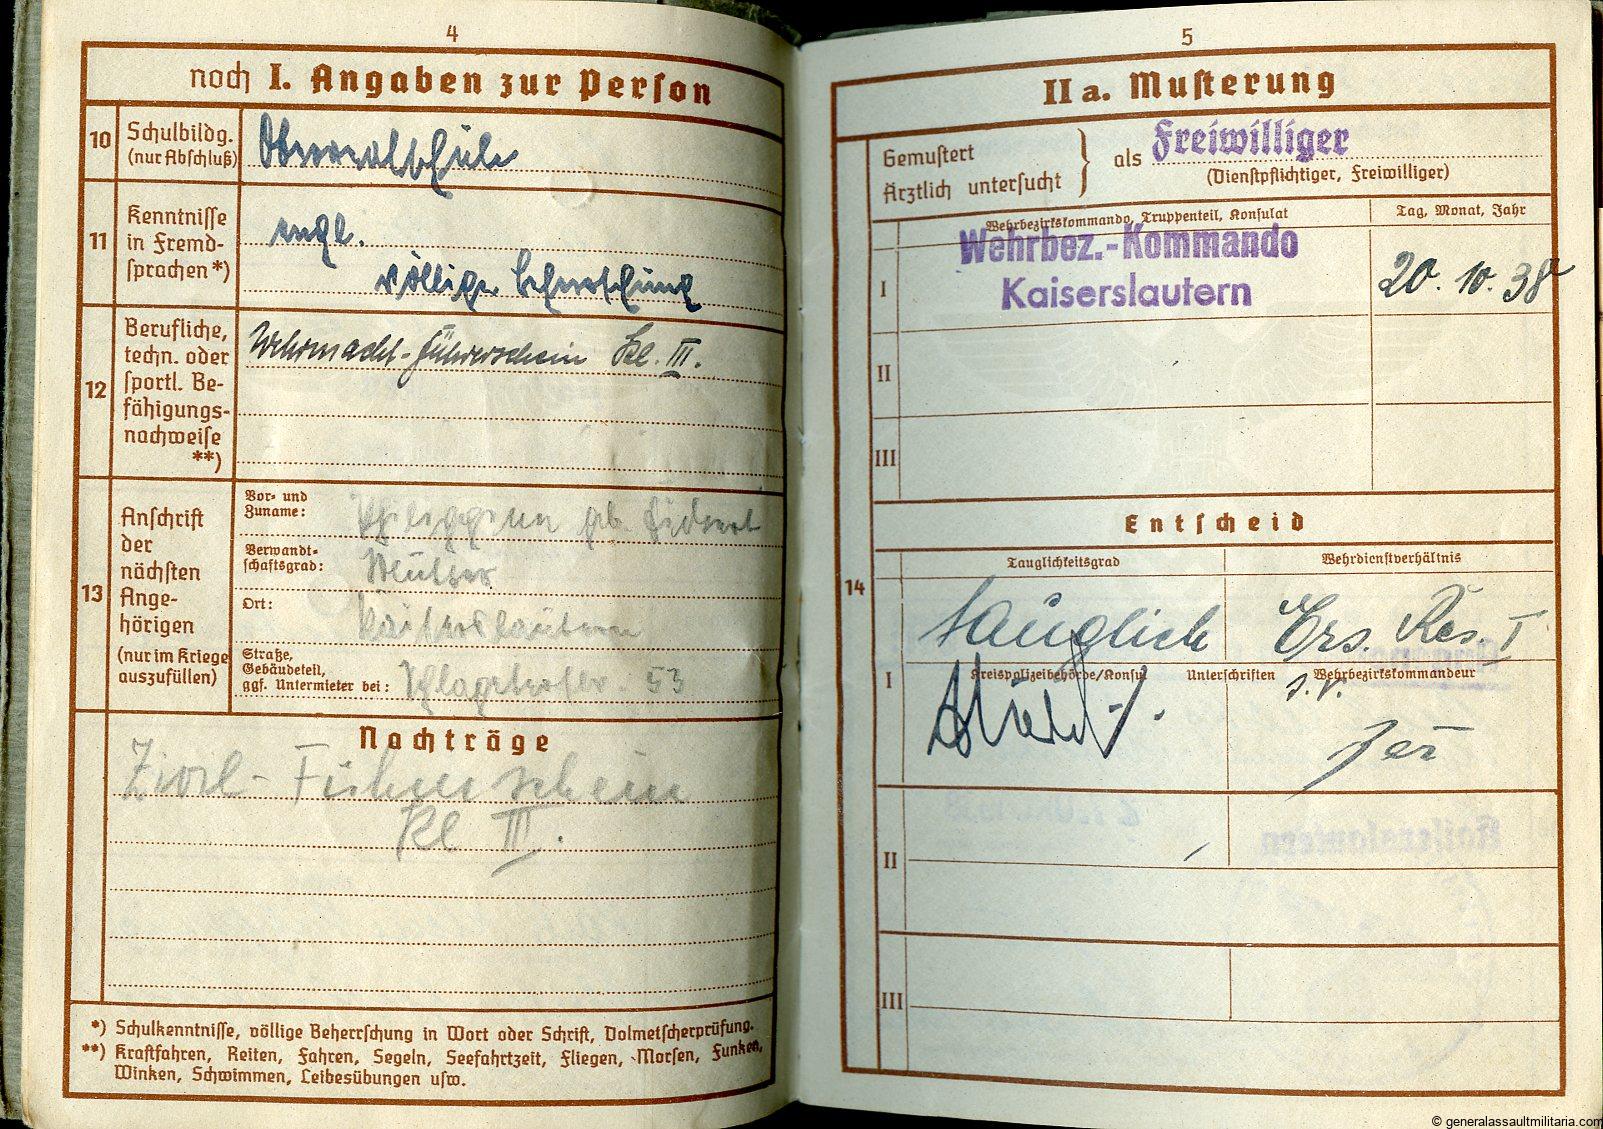 4
noch I. Angaben zur Person
10
Schulbildg.
(nur Abschluß)
Oberrealschule
11
Kenntnisse
in Fremd-
sprachen*)
engl.
völlige Beherrschung
12
Berufliche,
techn. oder
sportl. Be-
fähigungs-
nachweise
**)
Wehrmacht-Führerschein Kl. III.
13
Anschrift
der
nächsten
Ange-
hörigen
(nur im Kriege
auszufüllen)
Vor- und
Zuname:
geb.
Verwandt-
schaftsgrad:
Mutter
Ort:
Kaiserslautern
Straße,
Gebäudeteil,
ggf. Untermieter bei:
Schlageterstr. 53
Nachträge
Zivil-Führerschein
Kl III.
*) Schulkenntnisse, völlige Beherrschung in Wort oder Schrift, Dolmetscherprüfung.
**) Kraftfahren, Reiten, Fahren, Segeln, Seefahrtzeit, Fliegen, Morsen, Funken,
Winken, Schwimmen, Leibesübungen usw.
5
II a. Musterung
Gemustert
Ärztlich untersucht
als Freiwilliger
(Dienstpflichtiger, Freiwilliger)
Wehrbezirkskommando, Truppenteil, Konsulat
Tag, Monat, Jahr
I
Wehrbez.-Kommando
Kaiserslautern
20. 10. 38
II
III
Entscheid
14
Tauglichkeitsgrad
Wehrdienstverhältnis
I
tauglich
Ers. Res. I
Kreispolizeibehörde/Konsul
Unterschriften
Wehrbezirkskommandeur
II
III
© generalassaultmilitaria.com